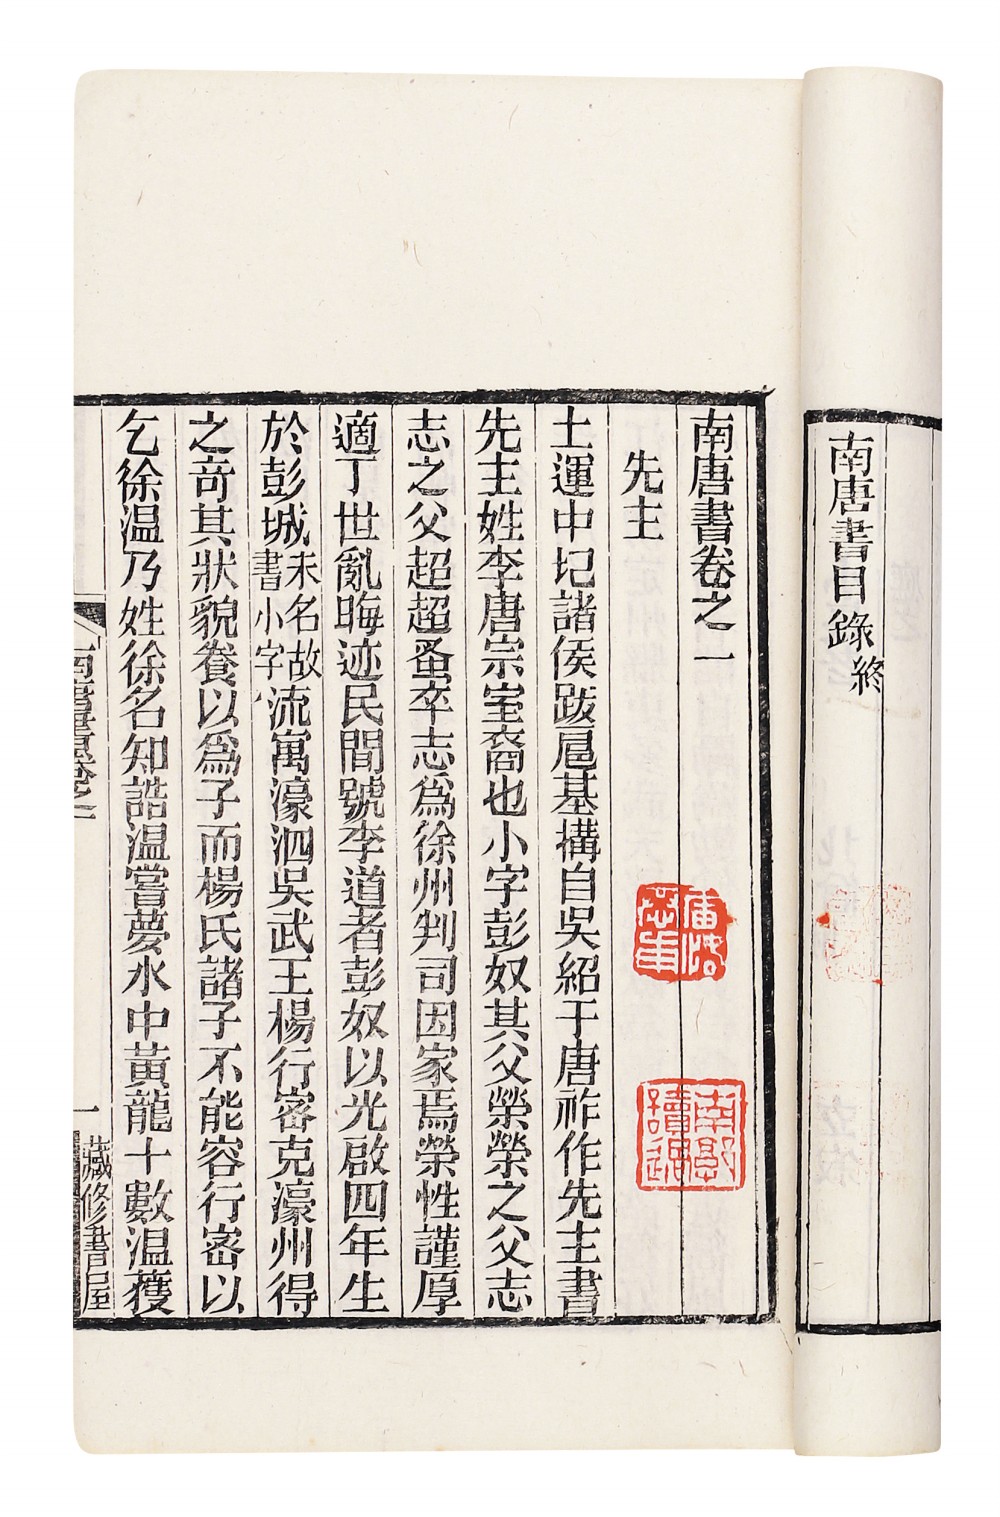 南唐書目錄終
南唐書卷之一
先主
土運中圮諸侯跋扈基搆自吳紹于唐祚作先主書
先主姓李唐宗室裔也小字彭奴其父榮榮之父志
志之父超超蚤卒志爲徐州判司因家焉榮性謹厚
適丁世亂晦迹民間號李道者彭奴以光啟四年生
於彭城未名故書小字流寓濠泗吳武王楊行密克濠州得
之奇其狀貌養以爲子而楊氏諸子不能容行密以
乞徐溫乃姓徐名知誥溫嘗夢水中黃龍十數溫獲
南唐書卷之一
一
藏修書屋